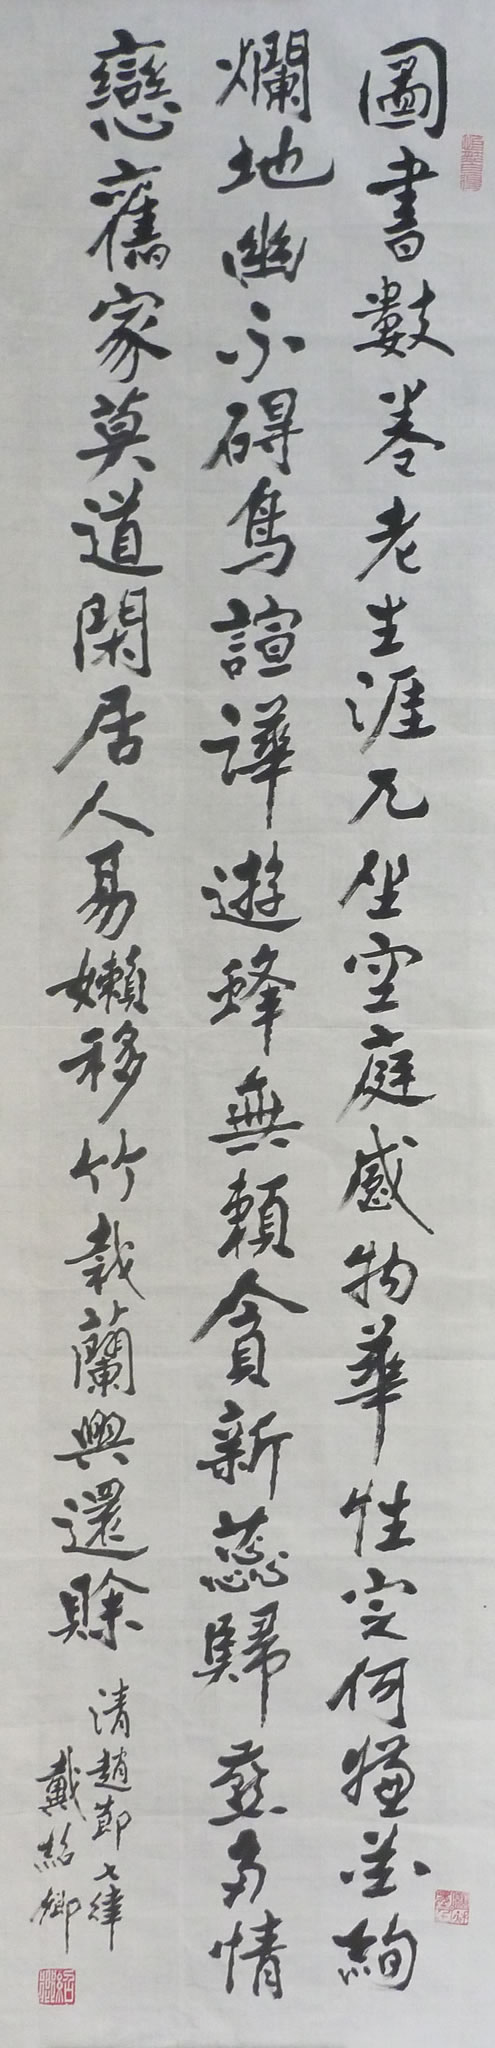 圖書數卷老生涯兀坐空庭感物華性定何嫌花絢
爛地幽不碍鳥諠譁遊蜂無賴貪新蕊歸燕多情
戀舊家莫道閑居人易嬾移竹栽蘭興還賒
清趙節七律
戴紹卿